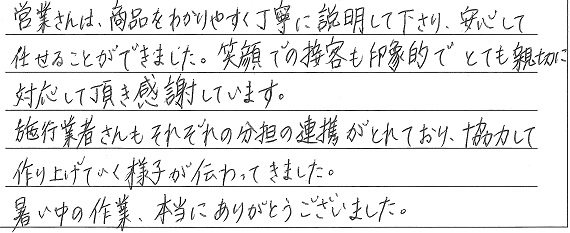 営業さんは、商品をわかりやすく丁寧に説明して下さり、安心して
任せることができました。笑顔での接客も印象的でとても親切に
対応して頂き感謝しています。
施行業者さんもそれぞれの分担の連携がとれており、協力して
作り上げていく様子が伝わってきました。
暑い中の作業、本当にありがとうございました。